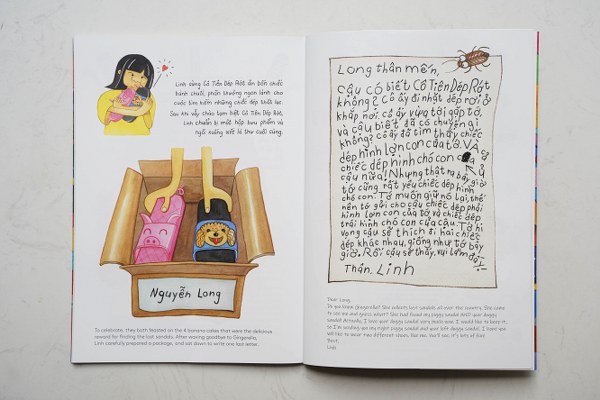 Linh cùng Cô Tiên Dép Rớt ăn bốn chiếc
bánh chuối, phần thưởng ngon lành cho
cuộc tìm kiếm những chiếc dép thất lạc.
Sau khi vẫy chào tạm biệt Cô Tiên Dép Rớt,
Linh chuẩn bị một hộp bưu phẩm và
ngồi xuống viết lá thư cuối cùng.
Nguyễn Long
To celebrate, they both feasted on the 4 banana cakes that were the delicious
reward for finding the lost sandals. After waving goodbye to Gingerella,
Linh carefully prepared a package, and sat down to write one last letter.
Long thân mến,
Cậu có biết Cô Tiên Dép Rớt
không? Cô ấy đi nhặt dép rơi ở
khắp nơi. Cô ấy vừa tới gặp tớ,
và cậu biết đã có chuyện gì
không? Cô ấy đã tìm thấy chiếc
dép hình lợn con của tớ. VÀ cả
chiếc dép hình chó con của
cậu nữa! Nhưng thật ra bây giờ
tớ cũng rất yêu chiếc dép hình
chó con. Tớ muốn giữ nó lại, thế
nên tớ gửi cho cậu chiếc dép phải
hình lợn con của tớ và chiếc dép
trái hình chó con của cậu. Tớ hi
vọng cậu sẽ thích đi hai chiếc
dép khác nhau, giống như tớ bây
giờ. Rồi cậu sẽ thấy, vui lắm đó!
Thân, Linh
Dear Long,
Do you know Gingerella? She collects lost sandals all over the country. She came
to see me and guess what? She had found my piggy sandal AND your doggy
sandal! Actually, I love your doggy sandal very much now. I would like to keep it,
so I'm sending you my right piggy sandal and your left doggy sandal. I hope you
will like to wear two different ones, like me. You'll see, it's lots of fun!
Best,
Linh